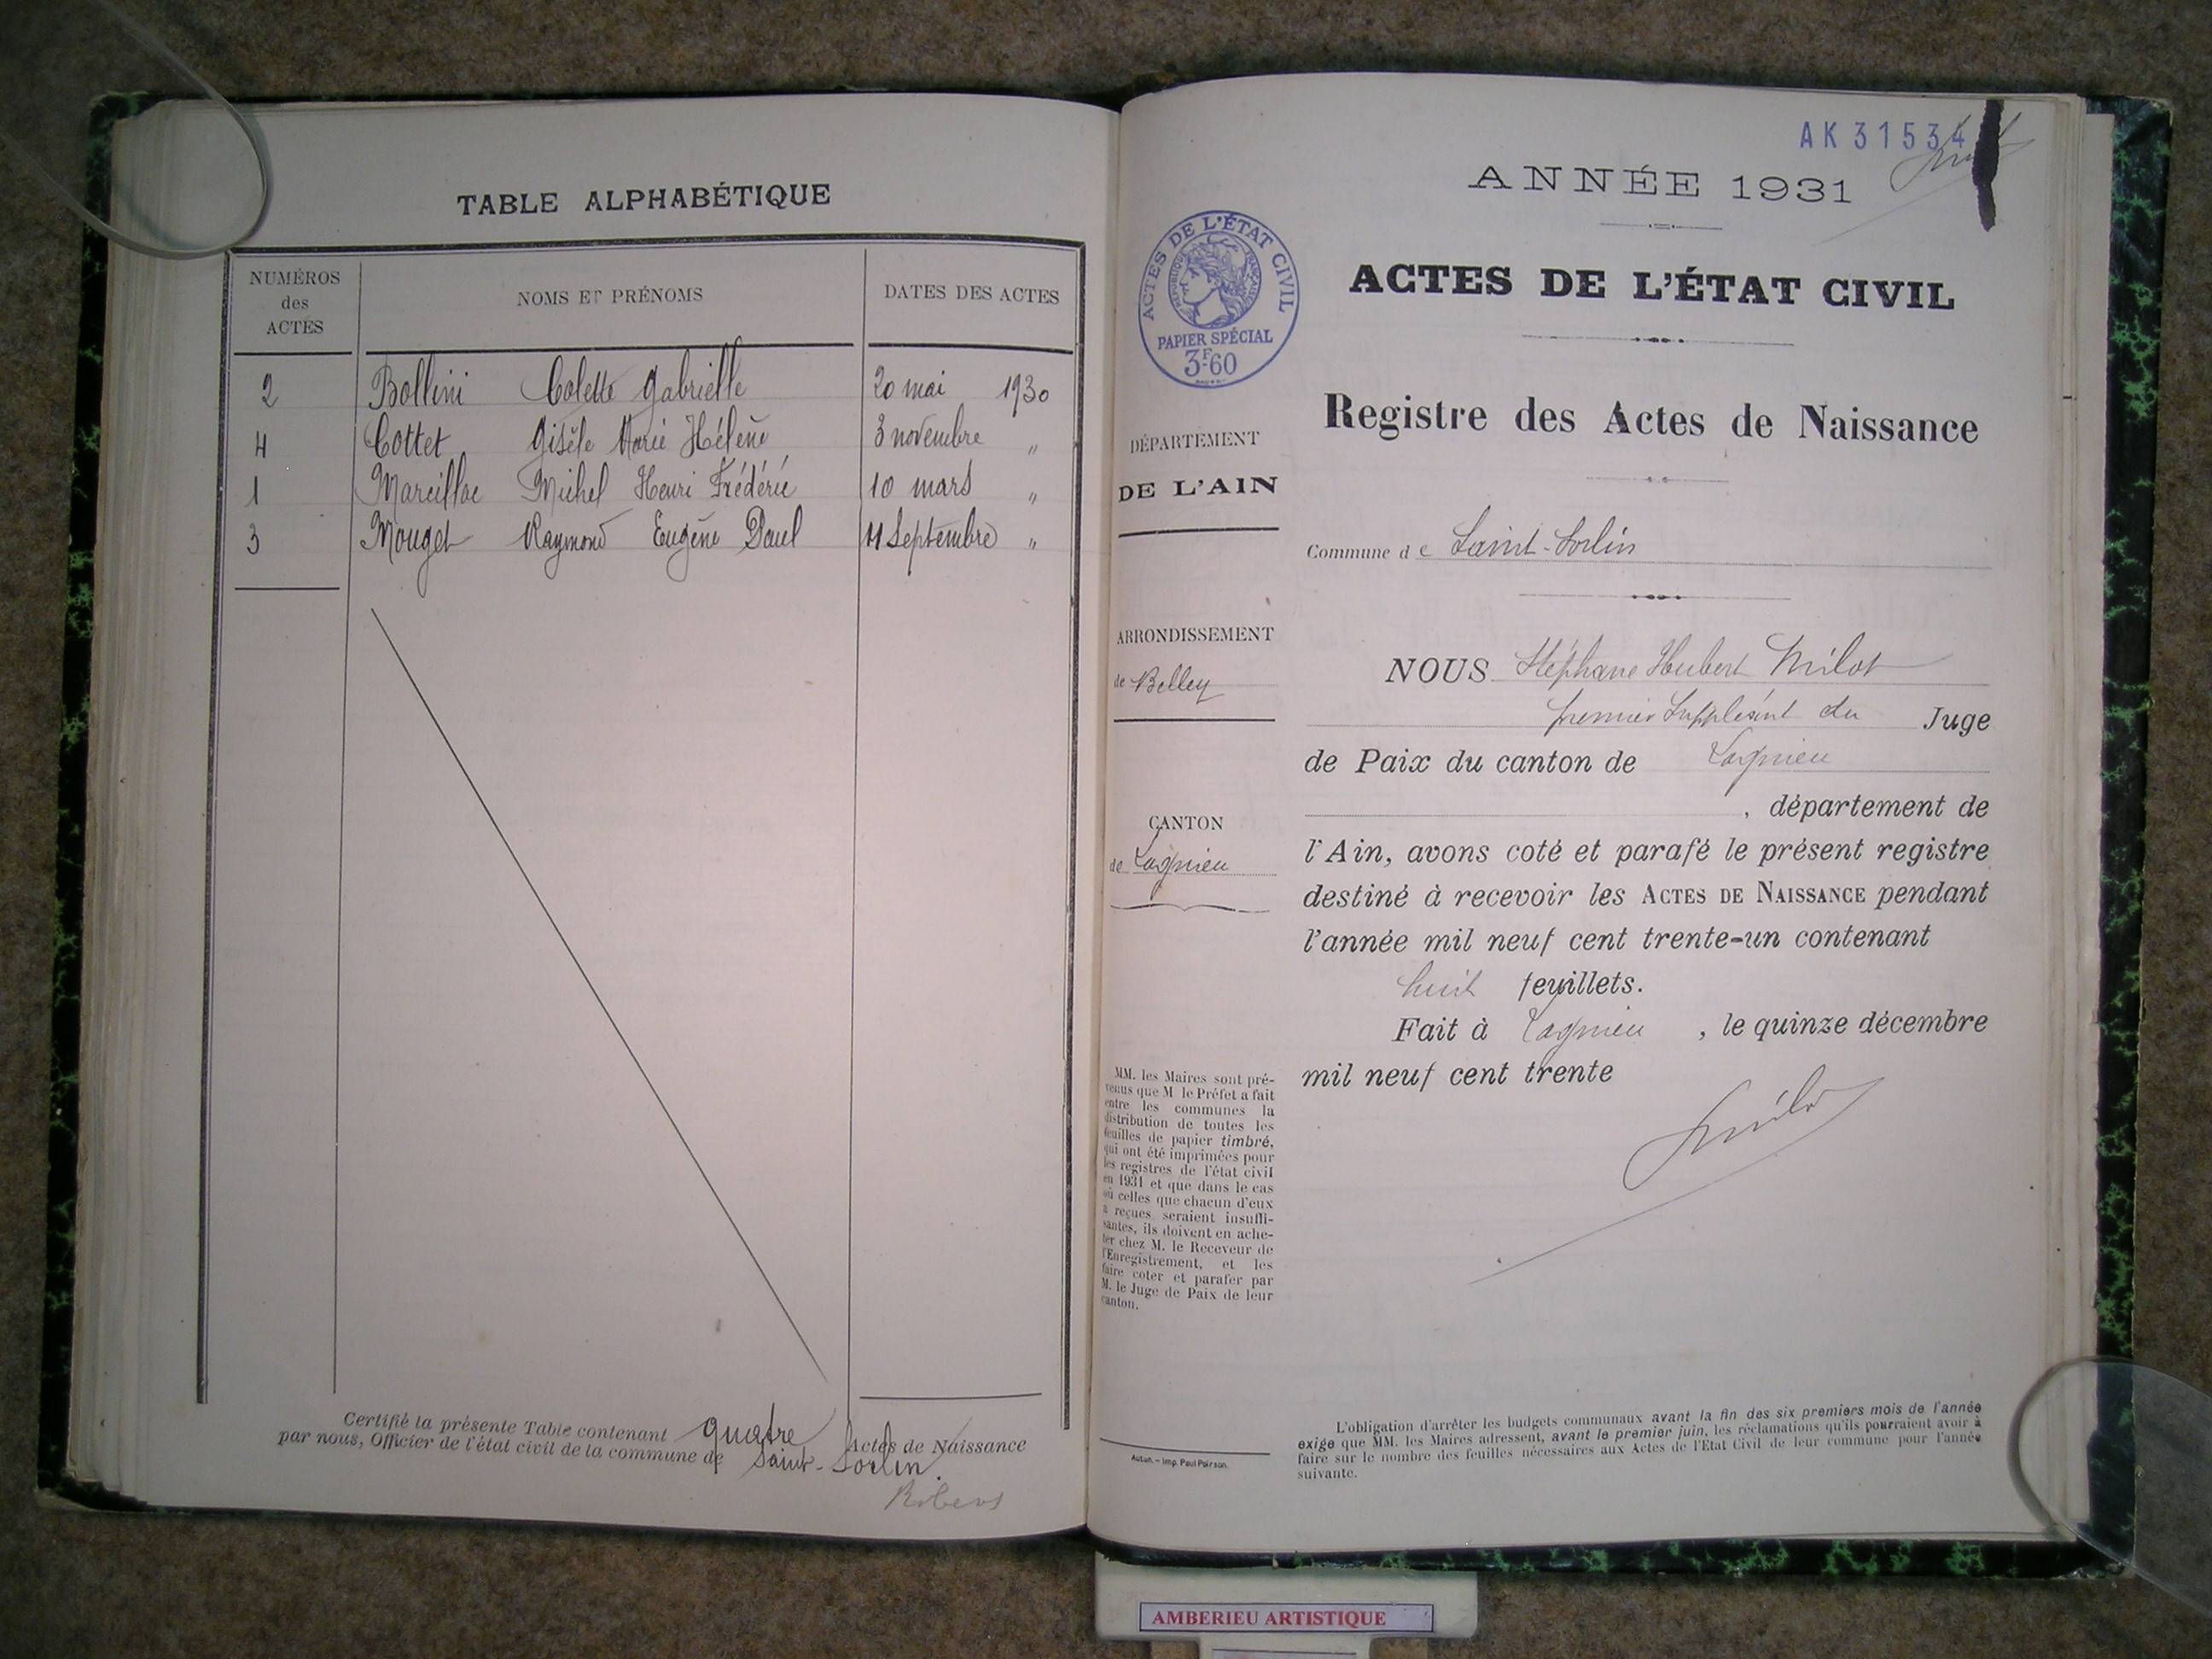 TABLE ALPHABÉTIQUE
NUMÉROS des ACTES
NOMS ET PRÉNOMS
DATES DES ACTES
2 Bollini Colette Gabrielle 20 mai 1930
4 Cottet Gisèle Marie Hélène 3 novembre "
1 Mareillac Michel Henri Frédéric 10 mars "
3 Mouget Raymond Eugène Paul 11 Septembre "
Certifié la présente Table contenant quatre Actes de Naissance
par nous, Officier de l'état civil de la commune de Saint-Sorlin.
AK 31534
ANNÉE 1931
ACTES DE L'ÉTAT CIVIL
RÉPUBLIQUE FRANÇAISE
PAPIER SPÉCIAL
3F60
ACTES DE L'ÉTAT CIVIL
Registre des Actes de Naissance
DÉPARTEMENT
DE L'AIN
Commune de Saint-Sorlin
ARRONDISSEMENT
de Belley
CANTON
de Lagnieu
NOUS Stéphane Hubert Milot
premier Suppléant du Juge
de Paix du canton de Lagnieu
, département de
l'Ain, avons coté et parafé le présent registre
destiné à recevoir les ACTES DE NAISSANCE pendant
l'année mil neuf cent trente-un contenant
huit feuillets.
Fait à Lagnieu , le quinze décembre
mil neuf cent trente
MM. les Maires sont pré-
venus que M le Préfet a fait
entre les communes la
distribution de toutes les
feuilles de papier timbré,
qui ont été imprimées pour
les registres de l'état civil
en 1931 et que dans le cas
où celles que chacun d'eux
a reçues seraient insuffi-
santes, ils doivent en ache-
ter chez M. le Receveur de
l'Enregistrement, et les
faire coter et parafer par
M. le Juge de Paix de leur
canton.
Autun. – Imp. Paul Poirson.
L'obligation d'arrêter les budgets communaux avant la fin des six premiers mois de l'année
exige que MM. les Maires adressent, avant le premier juin, les réclamations qu'ils pourraient avoir à
faire sur le nombre des feuilles nécessaires aux Actes de l'Etat Civil de leur commune pour l'année
suivante.
AMBERIEU ARTISTIQUE